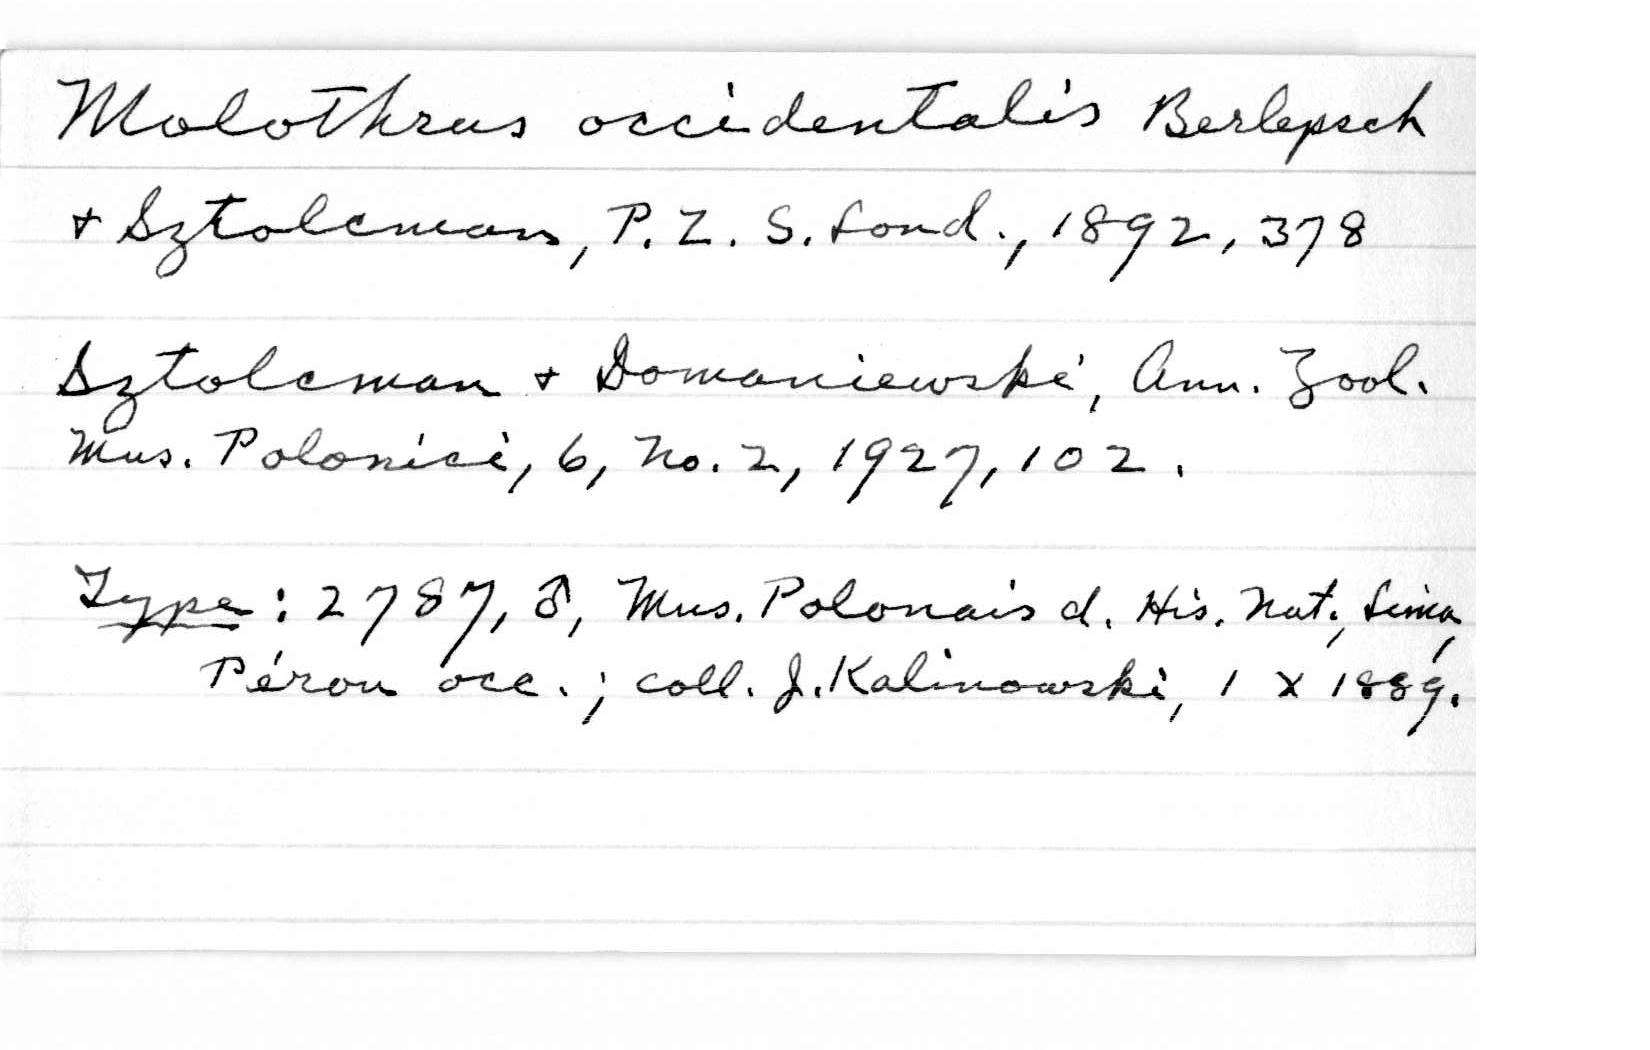 Molothrus occidentalis Berlepsch
+ Sztolcman, P. Z. S. Lond., 1892, 378
Sztolcman + Domaniewski, Ann. Zool.
Mus. Polonici, 6, No. 2, 1927, 102.
Type: 2787, ♂, Mus. Polonais d. His. Nat., Lima,
Pérou occ.; coll. J. Kalinowski, 1 X 1889.